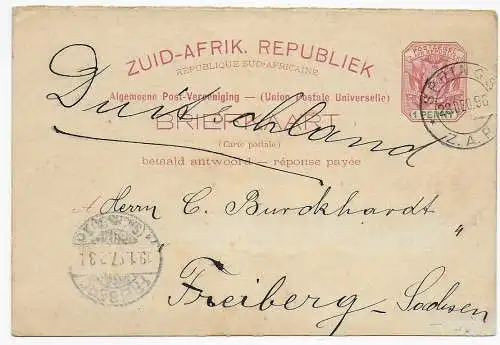 ZUID-AFRIK. REPUBLIEK
RÉPUBLIQUE SUD-AFRICAINE
Algemeene Post-Vereeniging — (Union Postale Universelle)
BRIEFKAART
(Carte postale)
betaald antwoord — réponse payée
POSTZEGEL
1 PENNY
SPRINGS
Z.A.R.
Deutschland
Herrn C. Burckhardt
Freiberg - Sachsen
FREIBERG